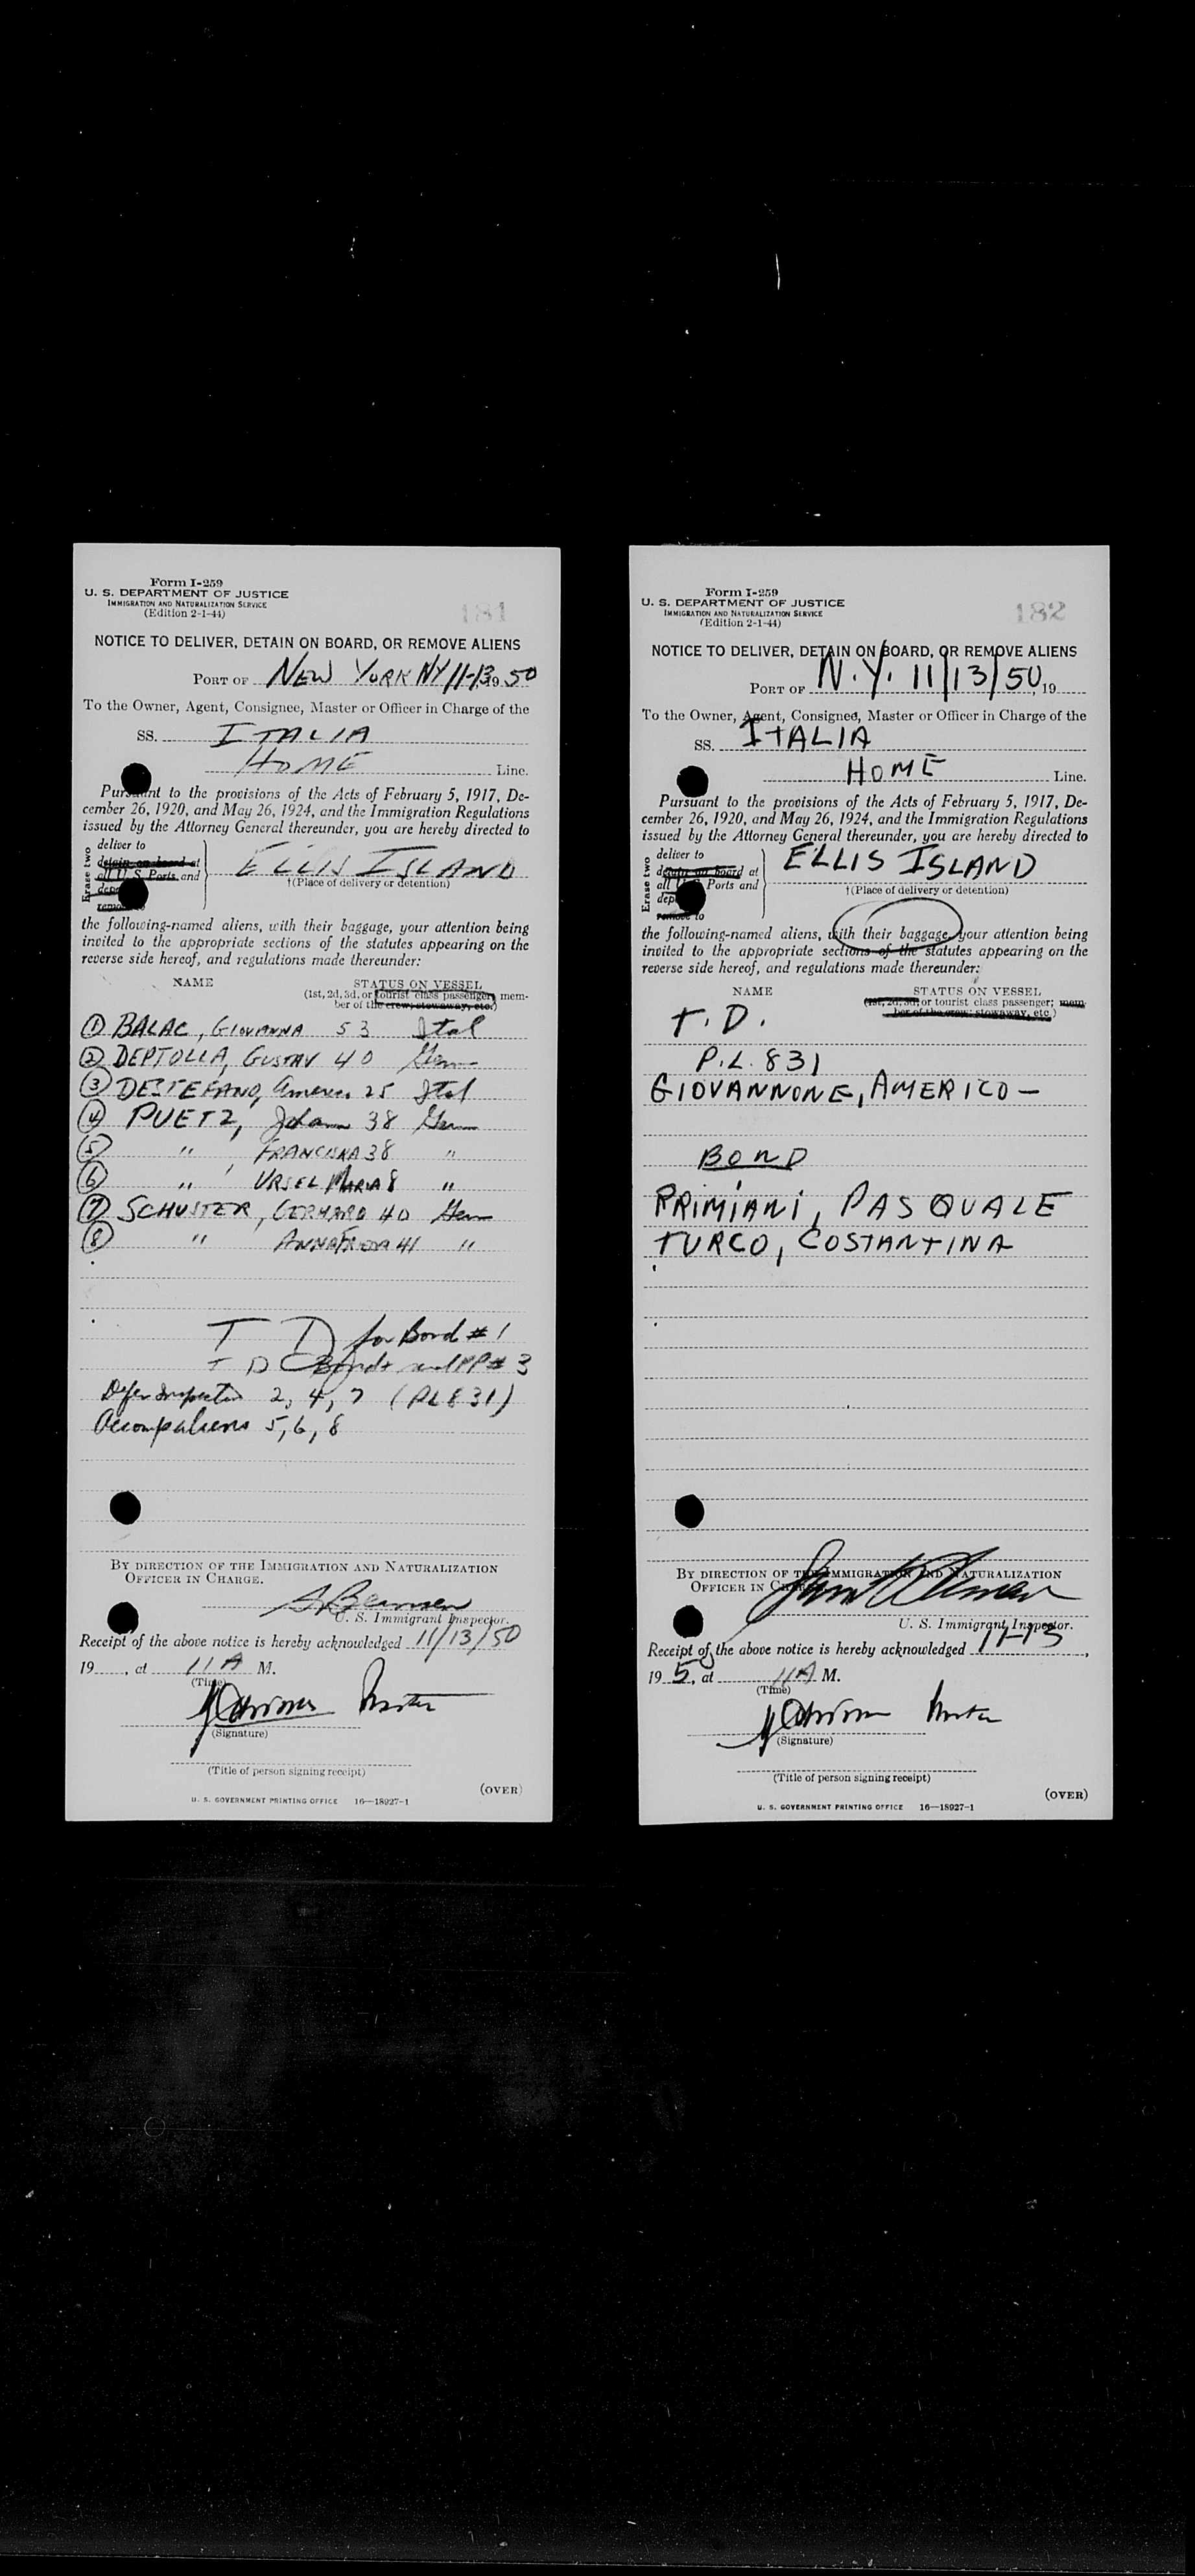 Form I-259
U. S. DEPARTMENT OF JUSTICE
IMMIGRATION AND NATURALIZATION SERVICE
(Edition 2-1-44)
181
NOTICE TO DELIVER, DETAIN ON BOARD, OR REMOVE ALIENS
PORT OF NEW YORK NY 11-13 19 50
To the Owner, Agent, Consignee, Master or Officer in Charge of the
SS. ITALIA
HOME Line.
Pursuant to the provisions of the Acts of February 5, 1917, De-
cember 26, 1920, and May 26, 1924, and the Immigration Regulations
issued by the Attorney General thereunder, you are hereby directed to
Erase two
deliver to
detain on board at
all U. S. Ports and
remove to
ELLIS ISLAND
†(Place of delivery or detention)
the following-named aliens, with their baggage, your attention being
invited to the appropriate sections of the statutes appearing on the
reverse side hereof, and regulations made thereunder:
NAME STATUS ON VESSEL
(1st, 2d, 3d, or tourist class passenger; mem-
ber of the crew; stowaway, etc.)
① BALAC, GIOVANNA 53 Ital
② DEPTOLLA, GUSTAV 40 Germ
③ DESTEFANO, 25 Ital
④ PUETZ, Johann 38 Germ
⑤ " FRANCISKA 38 "
⑥ " , URSEL MARIA 8 "
⑦ SCHUSTER, GERHARD 40 Germ
⑧ " ANNA FRIDA 41 "
T D for Bond # 1
T D Bond + and PP # 3
Defer Inspection 2, 4, 7 (PL 831)
Accomp aliens 5, 6, 8
BY DIRECTION OF THE IMMIGRATION AND NATURALIZATION
OFFICER IN CHARGE.
U. S. Immigrant Inspector.
Receipt of the above notice is hereby acknowledged 11/13/50
19 , at 11 A M.
(Time)
Master
(Signature)
(Title of person signing receipt)
(OVER)
U. S. GOVERNMENT PRINTING OFFICE 16—18927-1
Form I-259
U. S. DEPARTMENT OF JUSTICE
IMMIGRATION AND NATURALIZATION SERVICE
(Edition 2-1-44)
182
NOTICE TO DELIVER, DETAIN ON BOARD, OR REMOVE ALIENS
PORT OF N.Y. 11/13/50, 19
To the Owner, Agent, Consignee, Master or Officer in Charge of the
SS. ITALIA
HOME Line.
Pursuant to the provisions of the Acts of February 5, 1917, De-
cember 26, 1920, and May 26, 1924, and the Immigration Regulations
issued by the Attorney General thereunder, you are hereby directed to
Erase two
deliver to
detain on board at
all U. S. Ports and
remove to
ELLIS ISLAND
†(Place of delivery or detention)
the following-named aliens, with their baggage, your attention being
invited to the appropriate sections of the statutes appearing on the
reverse side hereof, and regulations made thereunder:
NAME STATUS ON VESSEL
(1st, 2d, 3d, or tourist class passenger; mem-
ber of the crew; stowaway, etc.)
T. D.
P.L. 831
GIOVANNONE, AMERICO —
BOND
PRIMIANI, PASQUALE
TURCO, COSTANTINA
BY DIRECTION OF THE IMMIGRATION AND NATURALIZATION
OFFICER IN CHARGE.
U. S. Immigrant Inspector.
Receipt of the above notice is hereby acknowledged 11-13,
19 50, at 11 A M.
(Time)
Master
(Signature)
(Title of person signing receipt)
(OVER)
U. S. GOVERNMENT PRINTING OFFICE 16—18927-1